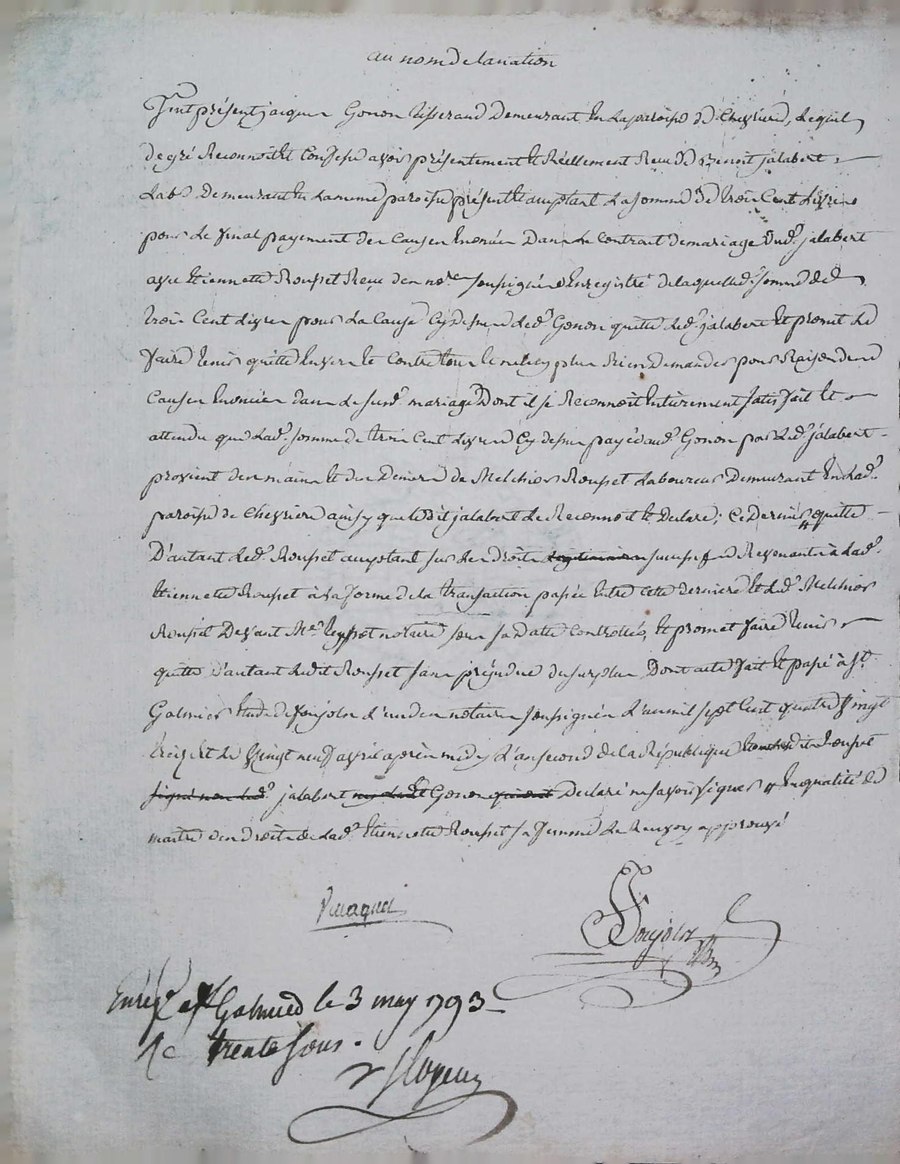 au nom de la nation
Fut présent jacques Gonon tisserand Demeurant En la paroisse de Chevrieres, Lequel
de gré Reconnoit Et Confesse avoir présentement Et Réellement Reçu de Benoit jalabert
Lab.r Demeurant En la meme paroisse présent Et acceptant La somme de trois Cent Livres
pour Le final payement des Causes Enoncées Dans Le Contrat de mariage dud.t jalabert
avec Etiennette Rousset Reçu des no.res soussignés Enregistré de laquelled.e somme de
trois Cent Livres pour La Cause Cy dessus Led.t Gonon quitte Led.t jalabert Et promet Le
faire tenir quitte Envers Et Contre tous Et ne luy plus Rien Demander pour Raison des
Causes Enoncées dans Le susd.t mariage Dont il se Reconnoit Entierement satisfait Et
attendu que Lad.e somme de trois Cent Livres Cy dessus payée aud.t Gonon par Led.t jalabert
provient des mains Et des Deniers de Melchior Rousset Laboureur Demeurant En Lad.e
paroisse de Chevrieres ainsy que ledit jalabert Le Reconnoit Et Declare; Ce Dernier quitte
D'autant Led.t Rousset acceptant sur Les droits successifs Revenants à Lad.e
Etiennette Rousset à La forme de La transaction passée Entre Cette derniere Et Led.t Melchior
Rousset Devant M.e notaire sous sa datte Controllée, Et promet faire tenir
quitte d'autant Ledit Rousset sans préjudice du surplus Dont acte fait Et passé à S.t
Galmier Etude de Soujols L'un des notaires soussignés L'an mil sept Cent quatre vingt
treize Et Le Vingt neuf avril après midy L'an second de La République Rousset
signé non Led.t jalabert Et Gonon Declaré ne savoir signer # En qualité de
maitre des droits de Lad.e Etiennette Rousset sa femme Le Renvoy approuvé
Soujols
Enreg.é à S.t Galmier le 3 may 1793
R.c trente sous.